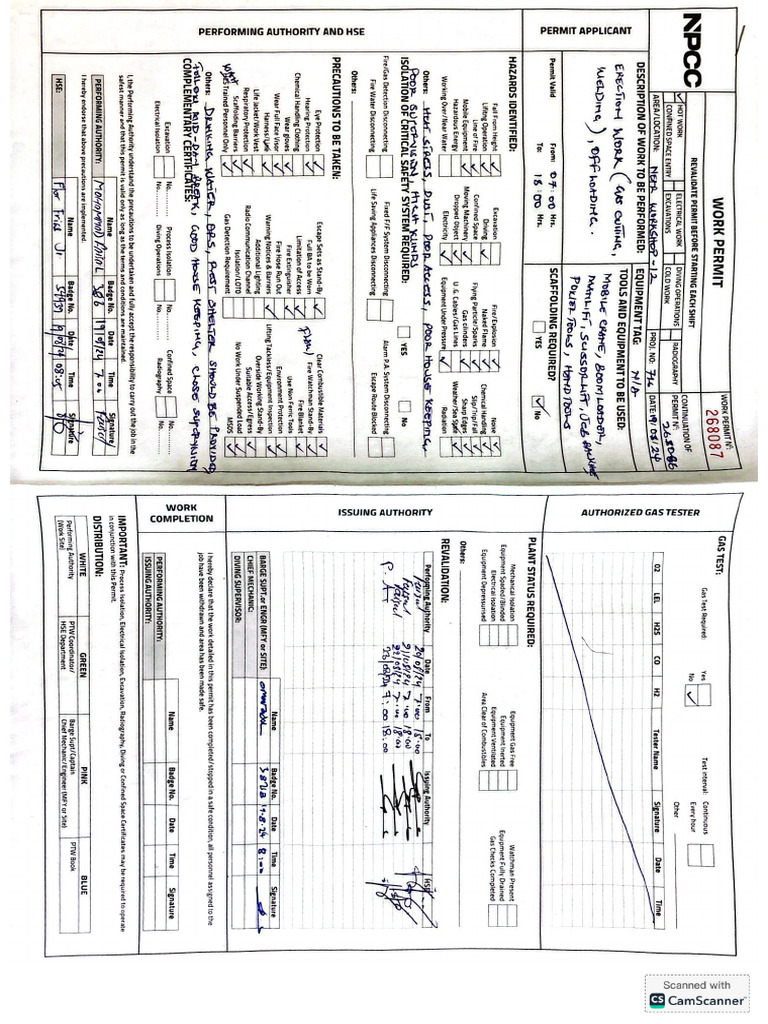 NPCC
WORK PERMIT
REVALIDATE PERMIT BEFORE STARTING EACH SHIFT
WORK PERMIT Nº:
268087
HOT WORK
ELECTRICAL WORK
DIVING OPERATIONS
RADIOGRAPHY
CONTINUATION OF
PERMIT Nº:
268086
CONFINED SPACE ENTRY
EXCAVATIONS
COLD WORK
AREA/LOCATION:
WORKSHOP - 12
PROJ. NO.
DATE: 19/08/24
PERMIT APPLICANT
DESCRIPTION OF WORK TO BE PERFORMED:
ERECTION WORK (GAS CUTTING,
WELDING), OFFLOADING.
EQUIPMENT TAG: N/A
TOOLS AND EQUIPMENT TO BE USED:
MOBILE CRANE, BOOM LOADER,
MANLIFT, SCISSOR LIFT,
POWER TOOLS, HAND TOOLS
Permit Valid
From: 07:00 Hrs.
To: 18:00 Hrs.
SCAFFOLDING REQUIRED?
YES
No
PERFORMING AUTHORITY AND HSE
HAZARDS IDENTIFIED:
Fall From Height
Excavation
Fire/Explosion
Noise
Lifting Operation
Driving
Naked Flame
Chemical Handling
Line of Fire
Confined Space
Flying Particle/Sparks
Slip/Trip/Fall
Mobile Equipment
Moving Machinery
Gas cylinders
Sharp Edges
Hazardous Energy
Dropped Object
U. G. Cables/Gas Lines
Weather/Sea State
Working Over/Near Water
Electricity
Equipment Under Pressure
Radiation
Others: HEAT STRESS, DUST, POOR ACCESS, POOR HOUSE KEEPING,
POOR SUPERVISION, HIGH WINDS
ISOLATION OF CRITICAL SAFETY SYSTEM REQUIRED:
YES
No
Fire/Gas Detection Disconnecting
Fixed F/F System Disconnecting
Alarm P.A. System Disconnecting
Fire Water Disconnecting
Life Saving Appliances Disconnecting
Escape Route Blocked
Others:
PRECAUTIONS TO BE TAKEN:
Eye Protection
Escape Sets as Stand-By
Clear Combustible Materials
Hearing Protection
Full BA to be Worn
Fire Watchman Stand-By
Chemical Handling Clothing
Limitation of Access
Fire Blanket
Wear gloves
Fire Extinguisher
Use Non Ferric Tools
Wear Full Face Visor
Fire Hose Run Out
Environment Protection
Harness/Lines
Warning Notices & Barriers
Lifting Tackless/Equipment Inspection
Life Jacket/Work Vest
Additional Lighting
Overside Working Stand-By
Respiratory Protection
Radio Communication Channel
Suitable Access/Egress
Scaffolding Barriers
Isolation/LOTO
No Work Under Suspended Load
Trained Personnel Only
Gas Detection Requirement
MSDS
Others: DRINKING WATER, ORS, REST SHELTER SHOULD BE PROVIDED
FOLLOW MID-DAY BREAK, GOOD HOUSE KEEPING, CLOSE SUPERVISION
COMPLEMENTARY CERTIFICATES:
Excavation No.
Process Isolation No.
Confined Space No.
Electrical Isolation No.
Diving Operations No.
Radiography No.
I, the Performing Authority understand the precautions to be undertaken and fully accept the responsibility to carry out the job in the
safest manner and that this permit is valid only as long as the terms and conditions are maintained.
Name
Badge No.
Date
Time
Signature
PERFORMING AUTHORITY:
MOHAMMAD
19/08/24
7:00
I hereby endorse that above precautions are implemented.
Name
Badge No.
Date
Time
Signature
HSE:
08:05
AUTHORIZED GAS TESTER
GAS TEST:
Gas Test Required:
Yes
No
Test interval:
Continuous
Every hour
Other
O2
LEL
H2S
CO
H2
Tester Name
Signature
Date
Time
ISSUING AUTHORITY
PLANT STATUS REQUIRED:
Mechanical Isolation
Equipment Gas Free
Watchman Present
Equipment Spaded/Blinded
Equipment Inerted
Equipment Fully Drained
Electrical Isolation
Equipment Ventilated
Gas Checks Completed
Equipment Depressurised
Area Clear of Combustibles
Others:
REVALIDATION:
Performing Authority
Date
From
To
Issuing Authority
HSE
20/08/24 7:00 18:00
21/08/24 7:00 18:00
22/08/24 7:00 18:00
23/08/24 7:00 18:00
Name
Badge No.
Date
Time
Signature
BARGE SUPT.or ENGR (MFY or SITE)
CHIEF MECHANIC:
DIVING SUPERVISOR:
19.8.24
8:00
WORK COMPLETION
I hereby declare that the work detailed in this permit has been completed/stopped in a safe condition, all personnel assigned to the
job have been withdrawn and area has been made safe.
Name
Badge No.
Date
Time
Signature
PERFORMING AUTHORITY:
ISSUING AUTHORITY:
IMPORTANT: Process Isolation, Electrical Isolation, Excavation, Radiography, Diving or Confined Space Certificates may be required to operate
in conjunction with this Permit.
DISTRIBUTION:
WHITE
GREEN
PINK
BLUE
Performing Authority
(Work Site)
PTW Coordinator/
HSE Department
Barge Supt/Captain
Chief Mechanic/Engineer (MFY or Site)
PTW Book
Scanned with
CS CamScanner